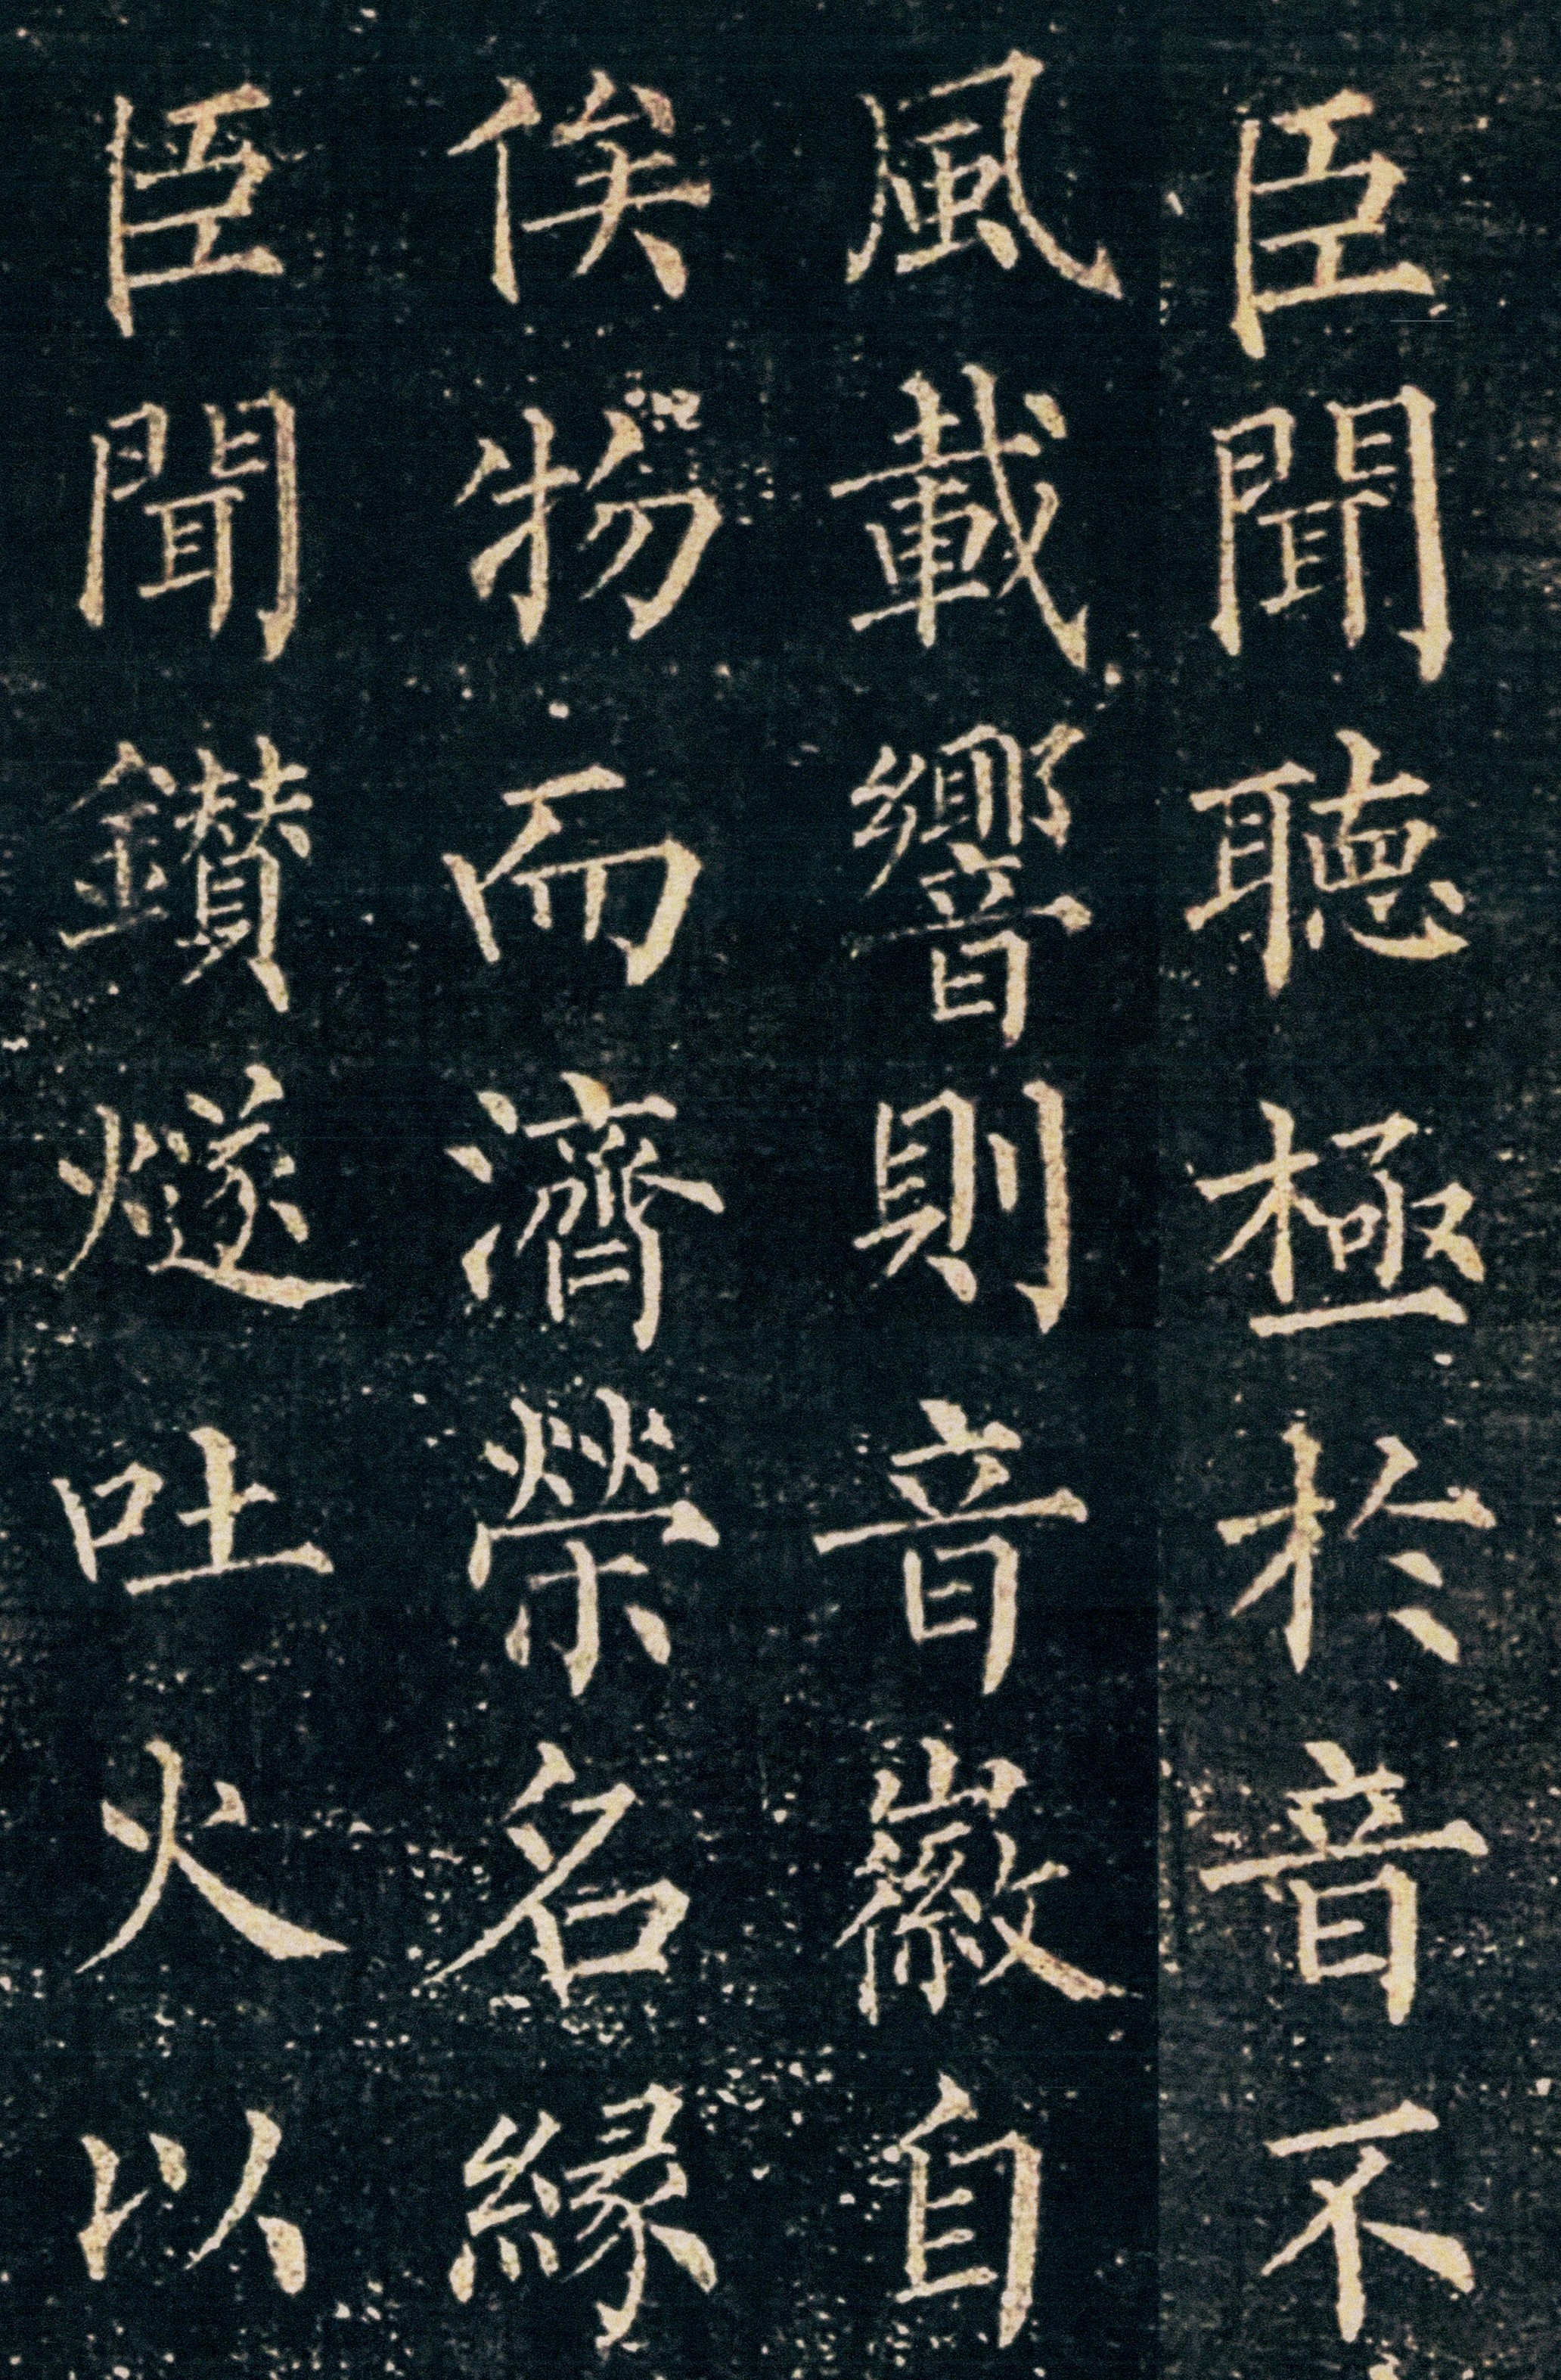 臣聞聽極於音不
風載響則音徽自
俟物而濟榮名緣
臣聞鑚燧吐火以